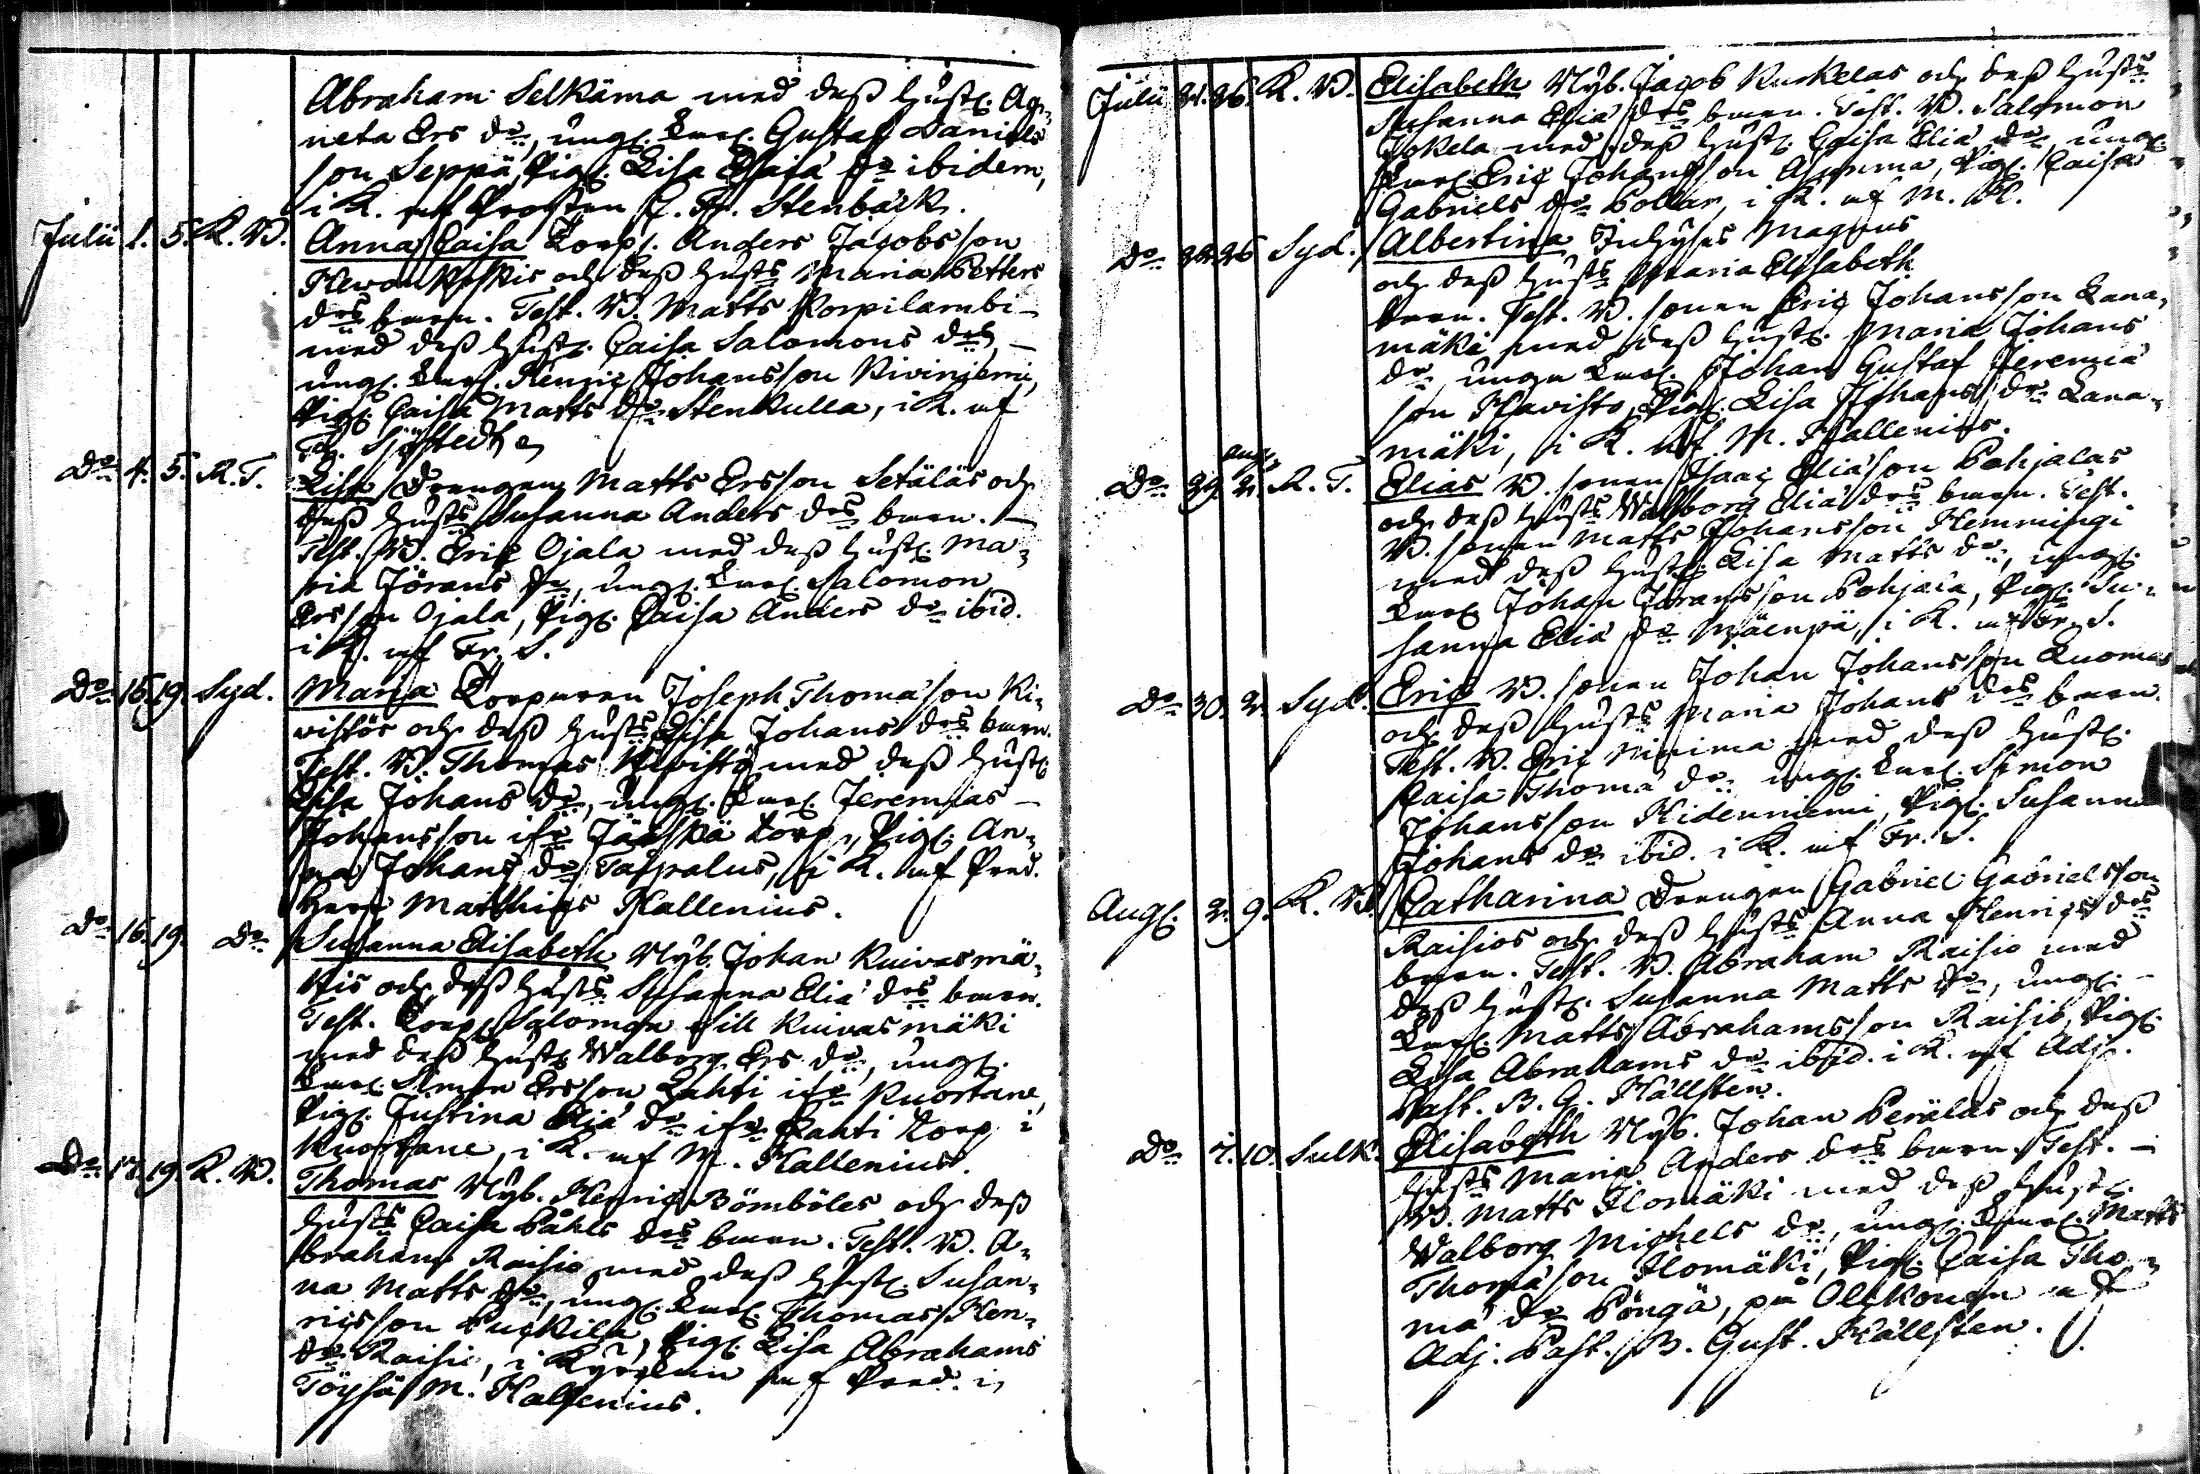 Abraham Selkäma med deß hust. Ag-
neta Ers dr, ung. Karl. Gustaf Daniels
son Seppä, Pig. Lisa Esaiä dr ibidem,
i K. af Prosten C. Fr. Stenbäck.
Julii 1. 5. K. W. Anna Caisa Torp. Anders Jacobsson
och deß hust:s Maria Petters
d:rs barn. Test. B. Matts Korpilambi
med deß hust. Caisa Salomons dr,
ung. Karl. Henric Johansson Kivinjemi,
Pig. Caisa Matts dr Stenkulla, i K. af
Sjöstedt
Do 4. 5. K. T. Lisa Drengen Matts Ersson Setäläs och
deß hust:s Susanna Anders d:rs barn.
Test. B. Eric Ojala med deß hust. Ma-
ria Jörans dr, ung. Karl. Salomon
Ersson Ojala, Pig. Caisa Anders dr ibid.
i K. af Fr. S.
Do 15. 19. Syd. Maria Torparen Joseph Thomason Ki-
vistös och deß hust:s Lisa Johans d:rs barn.
Test. B. Thomas Kivistö med deß hust.
Lisa Johans dr, ung. Karl. Jeremias
Johansson ifr. Jäaskä Torp, Pig. An-
na Johans dr Taipalus, i K. af Pred.
Herr Matthias Hallenius.
Do 16. 19. Do Susanna Elisabeth Nyb. Johan Kuivasmä-
kis och deß hust:s Susanna Elia d:rs barn.
Test. Torp. Salomon Sill Kuivasmäki
med deß hust. Walborg Ers dr, ung.
Karl. Simon Ersson Lahti ifr. Kuortane,
Pig. Justina Elia dr ifr. Lahti Torp i
Kuortane, i K. af M. Hallenius.
Do 17. 19. K. W. Thomas Nyb. Henric Bömböles och deß
hust:s Caisa Påhls d:rs barn. Test. B. A-
braham Raisio med deß hust. Susan-
na Matts dr, ung. Karl. Thomas Hen-
ricsson Puskila, Pig. Lisa Abrahams
dr Raisio, i Kyrckan af Pred. i
Töysä M. Hallenius.
Julii 21. 26. K. W. Elisabeth Nyb. Jacob Kuskelas och deß hust:s
Susanna Elia d:rs barn. Test. B. Salomon
Jokela med deß hust. Caisa Elia dr, ung.
Karl. Eric Johansson Asunma, Pig. Caisa
Gabriels dr Pollar, i K. af M. H.
Do 22. 26 Syd. Albertina Inhyses Magnus
och deß hust:s Maria Elisabeth
barn. Test. B. sonen Eric Johansson Lana-
mäki med deß hust. Maria Johans
dr, unga Karl. Johan Gustaf Jeremia
son Havisto, Pig. Lisa Johans dr Lana-
mäki, i K. af M. Hallenius.
Aug.
Do 29. 2. K. T. Elias B. sonen Isaac Eliason Pohjalas
och deß hust:s Walborg Elia d:rs barn. Test.
B. sonen Matts Johansson Hemmingi
med deß hust. Lisa Matts dr, ung.
Karl. Johan Jöransson Pohjala, Pig. Su-
sanna Elia dr Mäenpä, i K. af Fr. S.
Do 30. 2. Syd. Eric B. sonen Johan Johansson Luomas
och deß hust:s Maria Johans d:rs barn.
Test. B. Eric Ninima med deß hust.
Caisa Thoma dr, ung. Karl. Simon
Johansson Hidenniemi, Pig. Susanna
Johans dr ibid. i K. af Fr. S.
Aug. 2. 9. K. W. Catharina Drengen Gabriel Gabrielsson
Raisios och deß hust:s Anna Henrics d:rs
barn. Test. B. Abraham Raisio med
deß hust. Susanna Matts dr, ung.
Karl. Matts Abrahamsson Raisio, Pig.
Lisa Abrahams dr ibid. i K. af Adj.
Past. B. G. Hällsten.
Do 7. 10. Sulk. Elisabeth Nyb. Johan Peräläs och deß
hust:s Maria Anders d:rs barn. Test.
B. Matts Ilomäki med deß hust.
Walborg Michels dr, ung. Karl. Matts
Thomason Ilomäki, Pig. Caisa Tho-
ma dr Pöngä, på Olckonen af
Adj. Past. B. Gust. Hällsten.